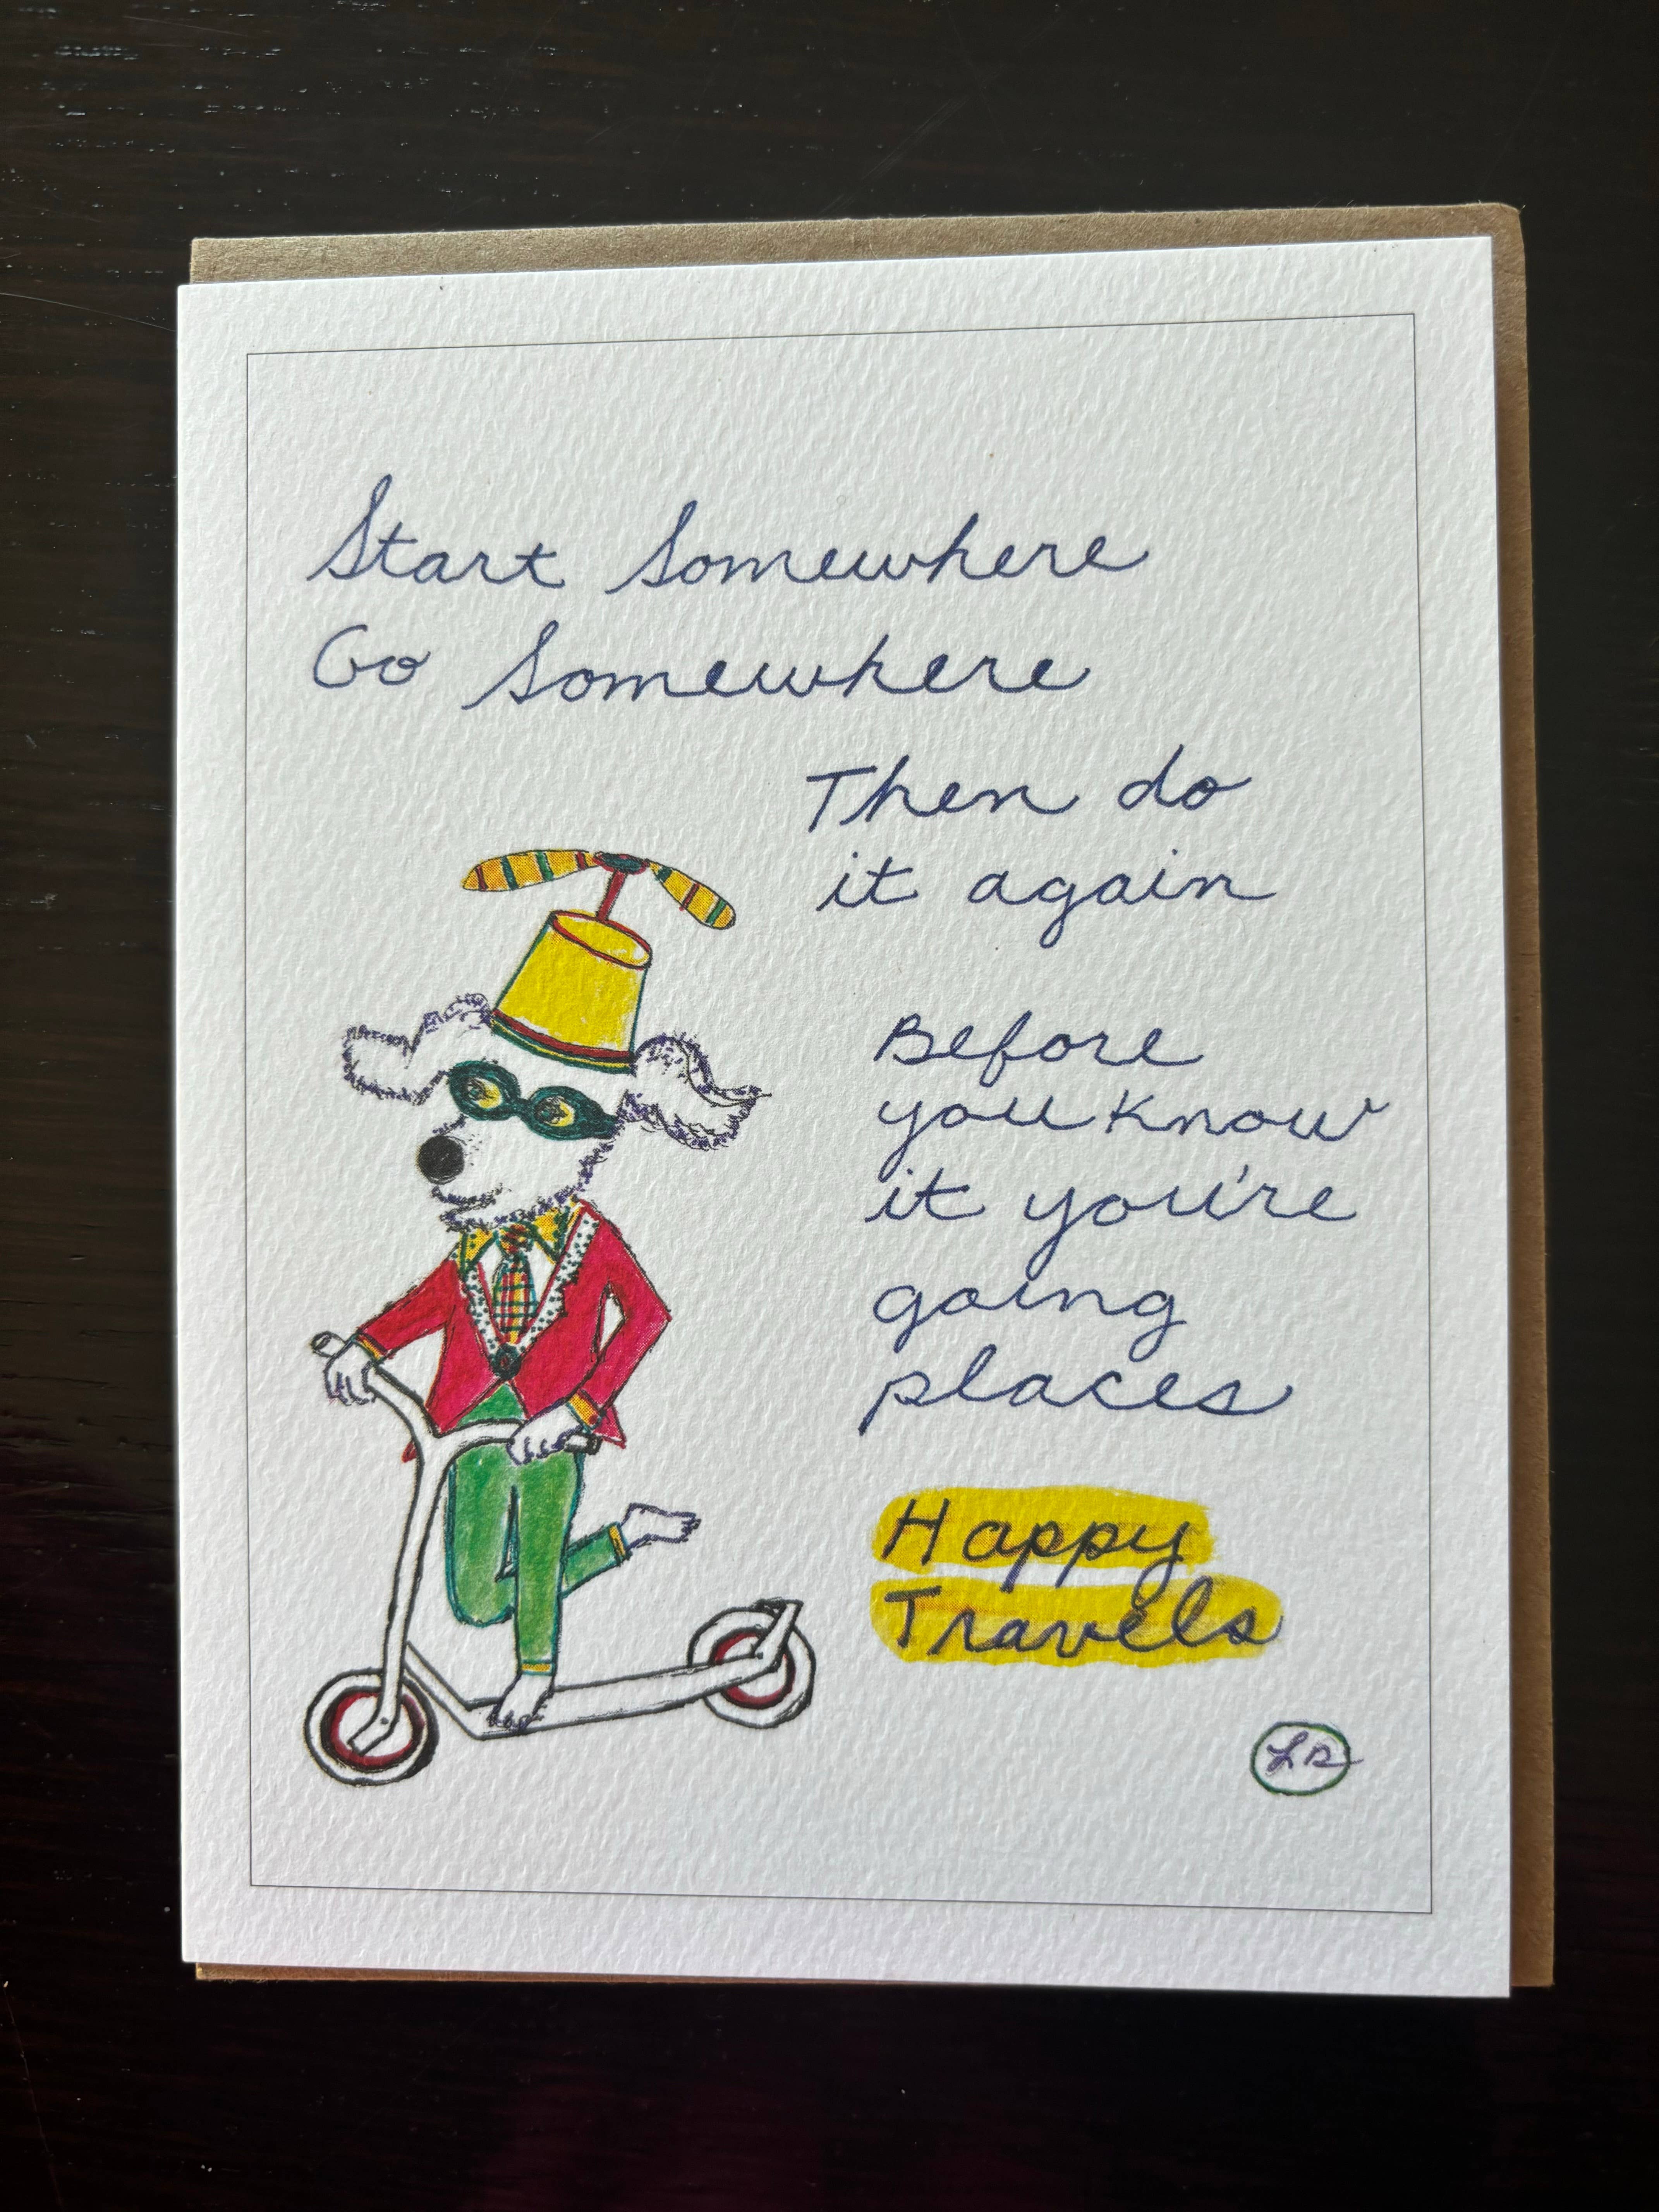 Start Somewhere
Go Somewhere
Then do
it again
Before
you know
it you're
going
places
Happy
Travels